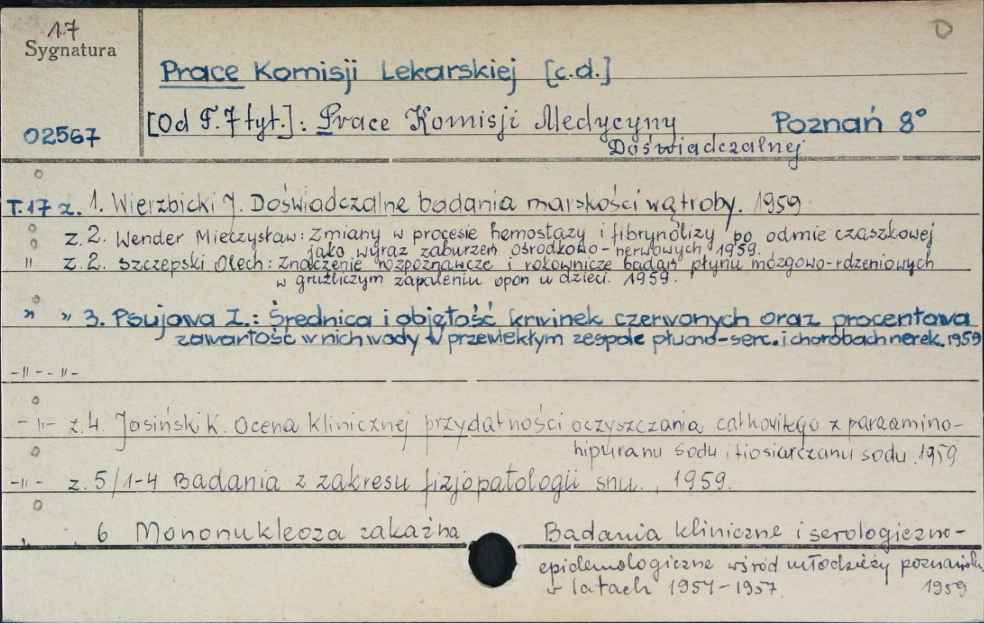 17
Sygnatura
D
Prace Komisji Lekarskiej [c.d.]
[Od T. 7 tyt.]: Prace Komisji Medycyny Poznań 8°
02567
Doświadczalnej
T.17 z. 1. Wierzbicki J. Doświadczalne badania marskości wątroby. 1959
z. 2. Wender Mieczysław: Zmiany w procesie hemostazy i fibrynolizy po odmie czaszkowej
jako wyraz zaburzeń ośrodkowo-nerwowych 1959.
" z. 2. Szczepski Olech: Znaczenie rozpoznawcze i rokownicze badań płynu mózgowo-rdzeniowych
w gruźliczym zapaleniu opon u dzieci. 1959.
" " 3. Psujowa I.: Średnica i objętość krwinek czerwonych oraz procentowa
zawartość w nich wody w przewlekłym zespole płucno-serc. i chorobach nerek. 1959
-"- -"-
-"- z. 4 Josiński K. Ocena klinicznej przydatności oczyszczania całkowitego z paraamino-
hipuranu sodu i tiosiarczanu sodu. 1959
-"- z. 5/1-4 Badania z zakresu fizjopatologii snu., 1959.
" " 6 Mononukleoza zakaźna Badania kliniczne i serologiczno-
epidemologiczne wśród młodzieży poznańsk.
w latach 1954-1957. 1959